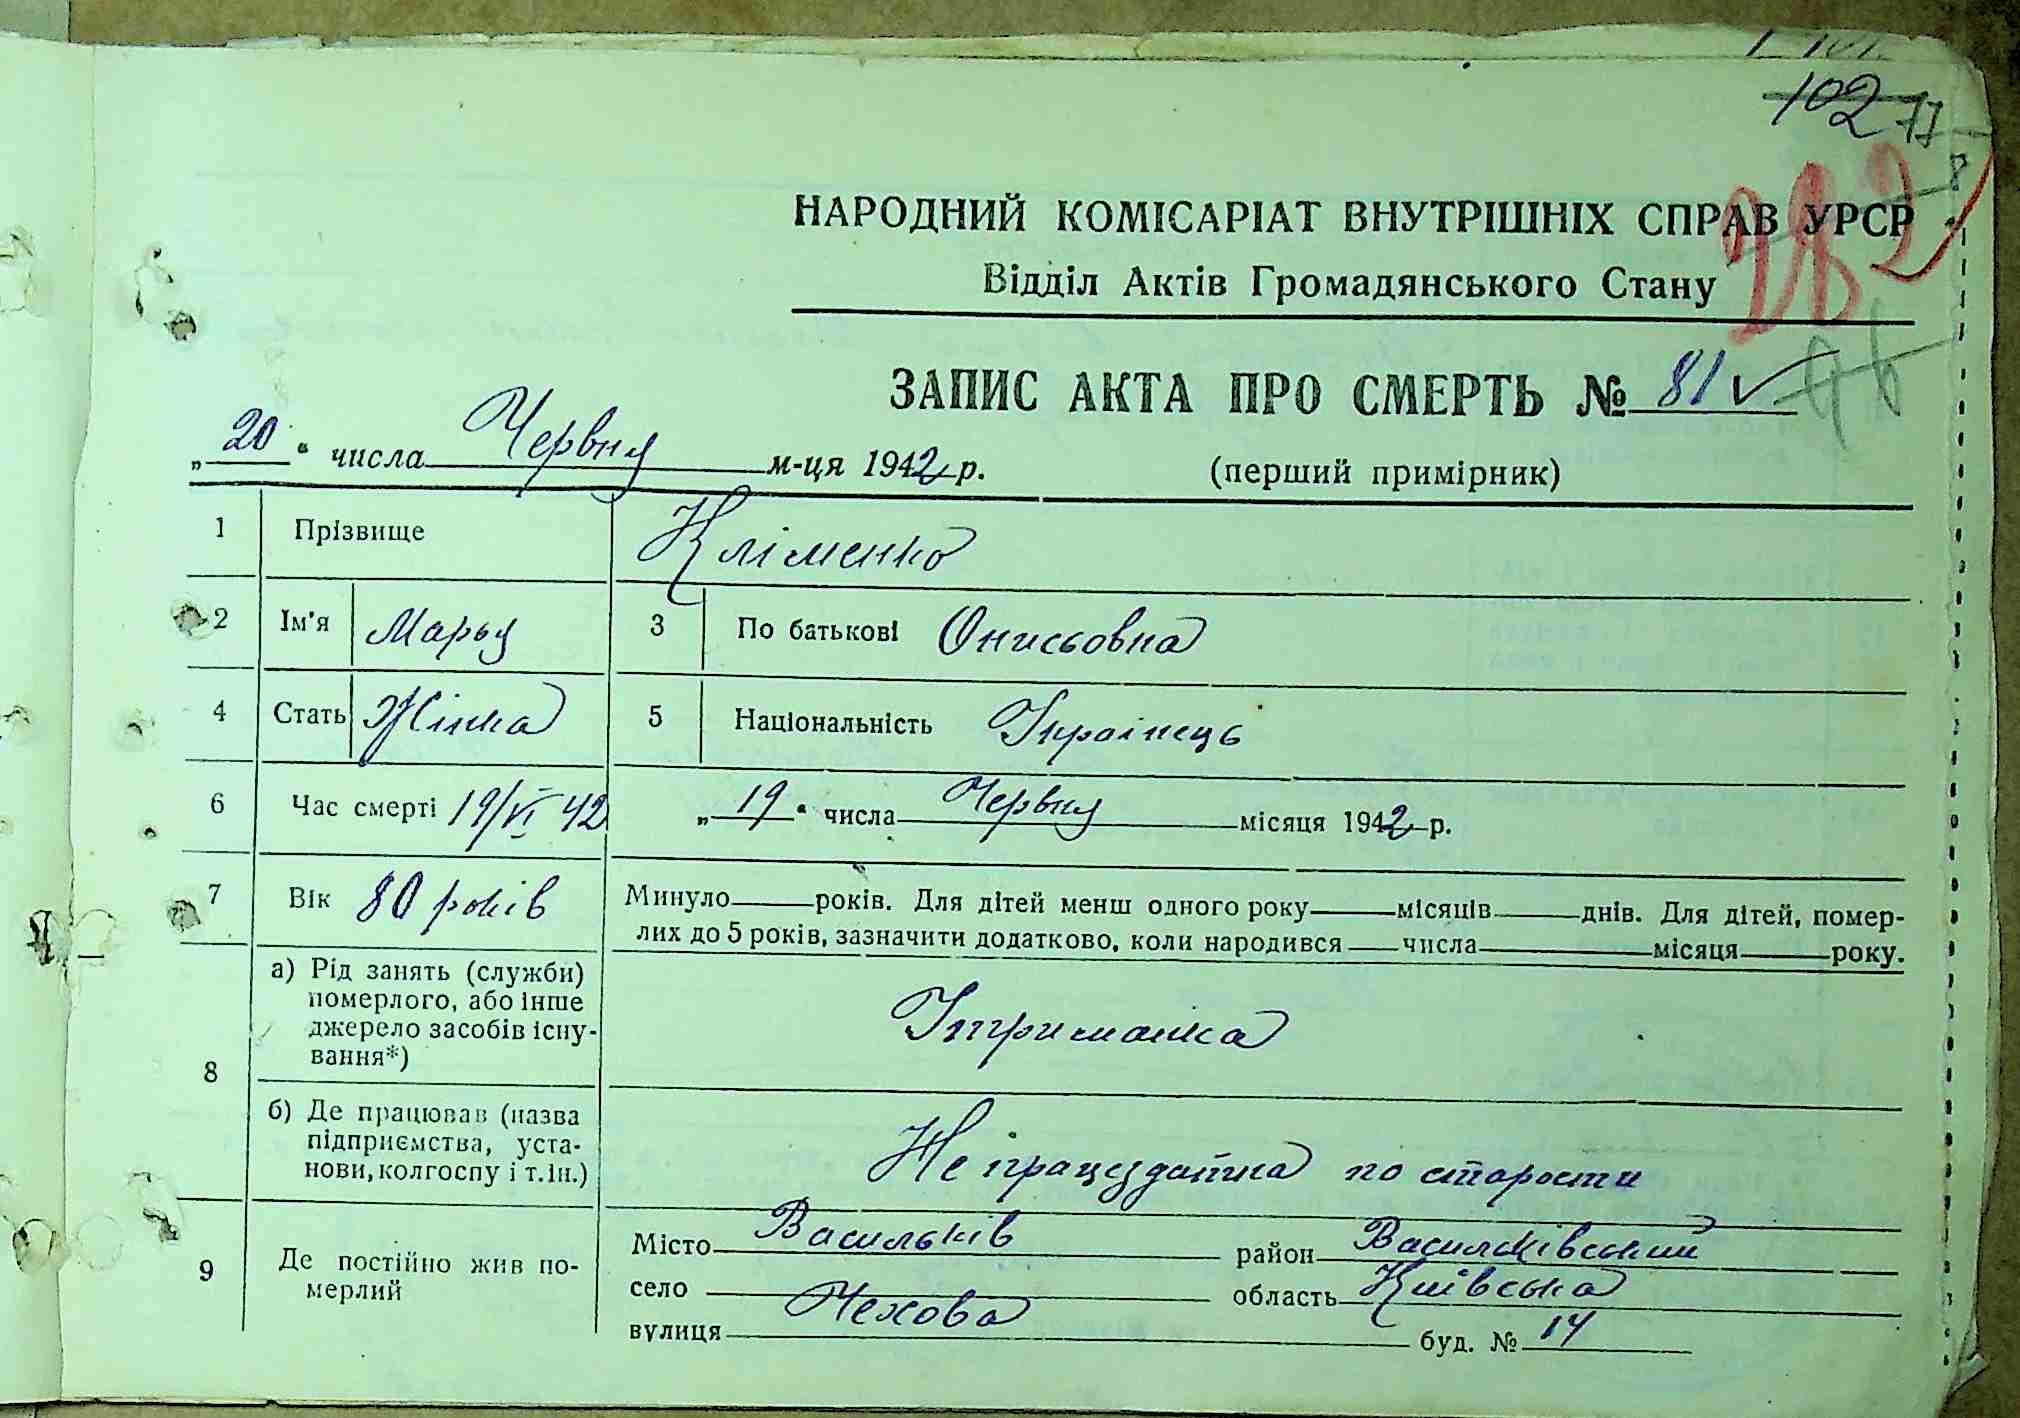 102 77
282
96
НАРОДНИЙ КОМІСАРІАТ ВНУТРІШНІХ СПРАВ УРСР
Відділ Актів Громадянського Стану
ЗАПИС АКТА ПРО СМЕРТЬ № 81 v
„20“ числа Червня м-ця 1942 р. (перший примірник)
1 Прізвище Кліменко
2 Ім'я Марья 3 По батькові Онисьовна
4 Стать Жінка 5 Національність Українець
6 Час смерті 19/VI 42 „19“ числа Червня місяця 1942 р.
7 Вік 80 років Минуло років. Для дітей менш одного року місяців днів. Для дітей, помер-
лих до 5 років, зазначити додатково, коли народився числа місяця року.
8 а) Рід занять (служби)
померлого, або інше
джерело засобів існу-
вання*)
Утриманка
б) Де працював (назва
підприємства, уста-
нови, колгоспу і т.ін.)
Не працездатна по старости
9 Де постійно жив по-
мерлий
Місто Васильків район Васильківський
село область Київська
вулиця Чехова буд. № 14